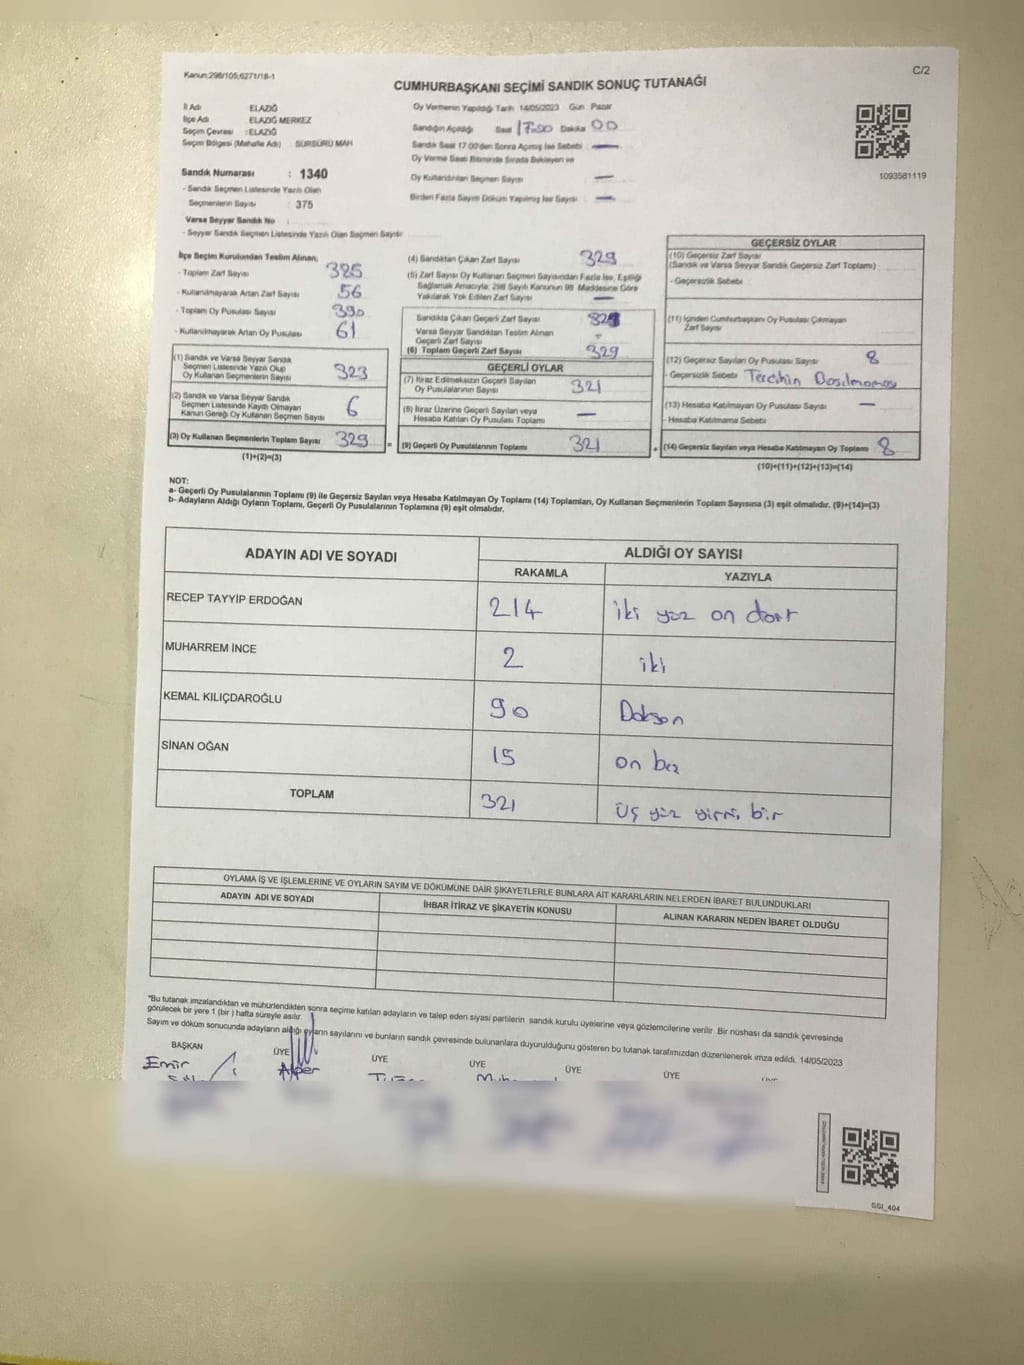 Kanun:298/105;6271/18-1
C/2
CUMHURBAŞKANI SEÇİMİ SANDIK SONUÇ TUTANAĞI
İl Adı ELAZIĞ
İlçe Adı ELAZIĞ MERKEZ
Seçim Çevresi : ELAZIĞ
Seçim Bölgesi (Mahalle Adı) : SÜRSÜRÜ MAH
Sandık Numarası : 1340
- Sandık Seçmen Listesinde Yazılı Olan
Seçmenlerin Sayısı : 375
Varsa Seyyar Sandık No :
- Seyyar Sandık Seçmen Listesinde Yazılı Olan Seçmen Sayısı:
Oy Vermenin Yapıldığı Tarih 14/05/2023 Gün Pazar
Sandığın Açıldığı Saat 17:00 Dakika 00
Sandık Saat 17:00'den Sonra Açılmış İse Sebebi : —
Oy Verme Saati Bitiminde Sırada Bekleyen ve
Oy Kullandırılan Seçmen Sayısı —
Birden Fazla Sayım Döküm Yapılmış İse Sayısı —
1093581119
İlçe Seçim Kurulundan Teslim Alınan;
- Toplam Zarf Sayısı 385
- Kullanılmayarak Artan Zarf Sayısı 56
- Toplam Oy Pusulası Sayısı 390
- Kullanılmayarak Artan Oy Pusulası 61
(1) Sandık ve Varsa Seyyar Sandık
Seçmen Listesinde Yazılı Olup
Oy Kullanan Seçmenlerin Sayısı 323
(2) Sandık ve Varsa Seyyar Sandık
Seçmen Listesinde Kayıtlı Olmayan
Kanun Gereği Oy Kullanan Seçmen Sayısı 6
(3) Oy Kullanan Seçmenlerin Toplam Sayısı 329
(1)+(2)=(3)
(4) Sandıktan Çıkan Zarf Sayısı 329
(5) Zarf Sayısı Oy Kullanan Seçmen Sayısından Fazla İse, Eşitliği
Sağlamak Amacıyla, 298 Sayılı Kanunun 98 Maddesine Göre
Yakılarak Yok Edilen Zarf Sayısı —
Sandıkta Çıkan Geçerli Zarf Sayısı 329
Varsa Seyyar Sandıktan Teslim Alınan
Geçerli Zarf Sayısı +
(6) Toplam Geçerli Zarf Sayısı 329
GEÇERLİ OYLAR
(7) İtiraz Edilmeksizin Geçerli Sayılan
Oy Pusulalarının Sayısı 321
(8) İtiraz Üzerine Geçerli Sayılan veya
Hesaba Katılan Oy Pusulası Toplamı —
= (9) Geçerli Oy Pusulalarının Toplamı 321
GEÇERSİZ OYLAR
(10) Geçersiz Zarf Sayısı
(Sandık ve Varsa Seyyar Sandık Geçersiz Zarf Toplamı) :
- Geçersizlik Sebebi :
(11) İçinden Cumhurbaşkanı Oy Pusulası Çıkmayan
Zarf Sayısı :
(12) Geçersiz Sayılan Oy Pusulası Sayısı : 8
- Geçersizlik Sebebi : Tercihin Basılmaması
(13) Hesaba Katılmayan Oy Pusulası Sayısı : —
- Hesaba Katılmama Sebebi
+ (14) Geçersiz Sayılan veya Hesaba Katılmayan Oy Toplamı : 8
(10)+(11)+(12)+(13)=(14)
NOT:
a- Geçerli Oy Pusulalarının Toplamı (9) ile Geçersiz Sayılan veya Hesaba Katılmayan Oy Toplamı (14) Toplamları, Oy Kullanan Seçmenlerin Toplam Sayısına (3) eşit olmalıdır. (9)+(14)=(3)
b- Adayların Aldığı Oyların Toplamı, Geçerli Oy Pusulalarının Toplamına (9) eşit olmalıdır.
ADAYIN ADI VE SOYADI
ALDIĞI OY SAYISI
RAKAMLA YAZIYLA
RECEP TAYYİP ERDOĞAN 214 iki yüz on dört
MUHARREM İNCE 2 iki
KEMAL KILIÇDAROĞLU 90 Doksan
SİNAN OĞAN 15 on beş
TOPLAM 321 üç yüz yirmi bir
OYLAMA İŞ VE İŞLEMLERİNE VE OYLARIN SAYIM VE DÖKÜMÜNE DAİR ŞİKAYETLERLE BUNLARA AİT KARARLARIN NELERDEN İBARET BULUNDUKLARI
ADAYIN ADI VE SOYADI İHBAR İTİRAZ VE ŞİKAYETİN KONUSU ALINAN KARARIN NEDEN İBARET OLDUĞU
"Bu tutanak imzalandıktan ve mühürlendikten sonra seçime katılan adayların ve talep eden siyasi partilerin sandık kurulu üyelerine veya gözlemcilerine verilir. Bir nüshası da sandık çevresinde
görülecek bir yere 1 (bir ) hafta süreyle asılır.
Sayım ve döküm sonucunda adayların aldığı oyların sayılarını ve bunların sandık çevresinde bulunanlara duyurulduğunu gösteren bu tutanak tarafımızdan düzenlenerek imza edildi. 14/05/2023
BAŞKAN ÜYE ÜYE ÜYE ÜYE ÜYE
Emir Alper
SSI_404